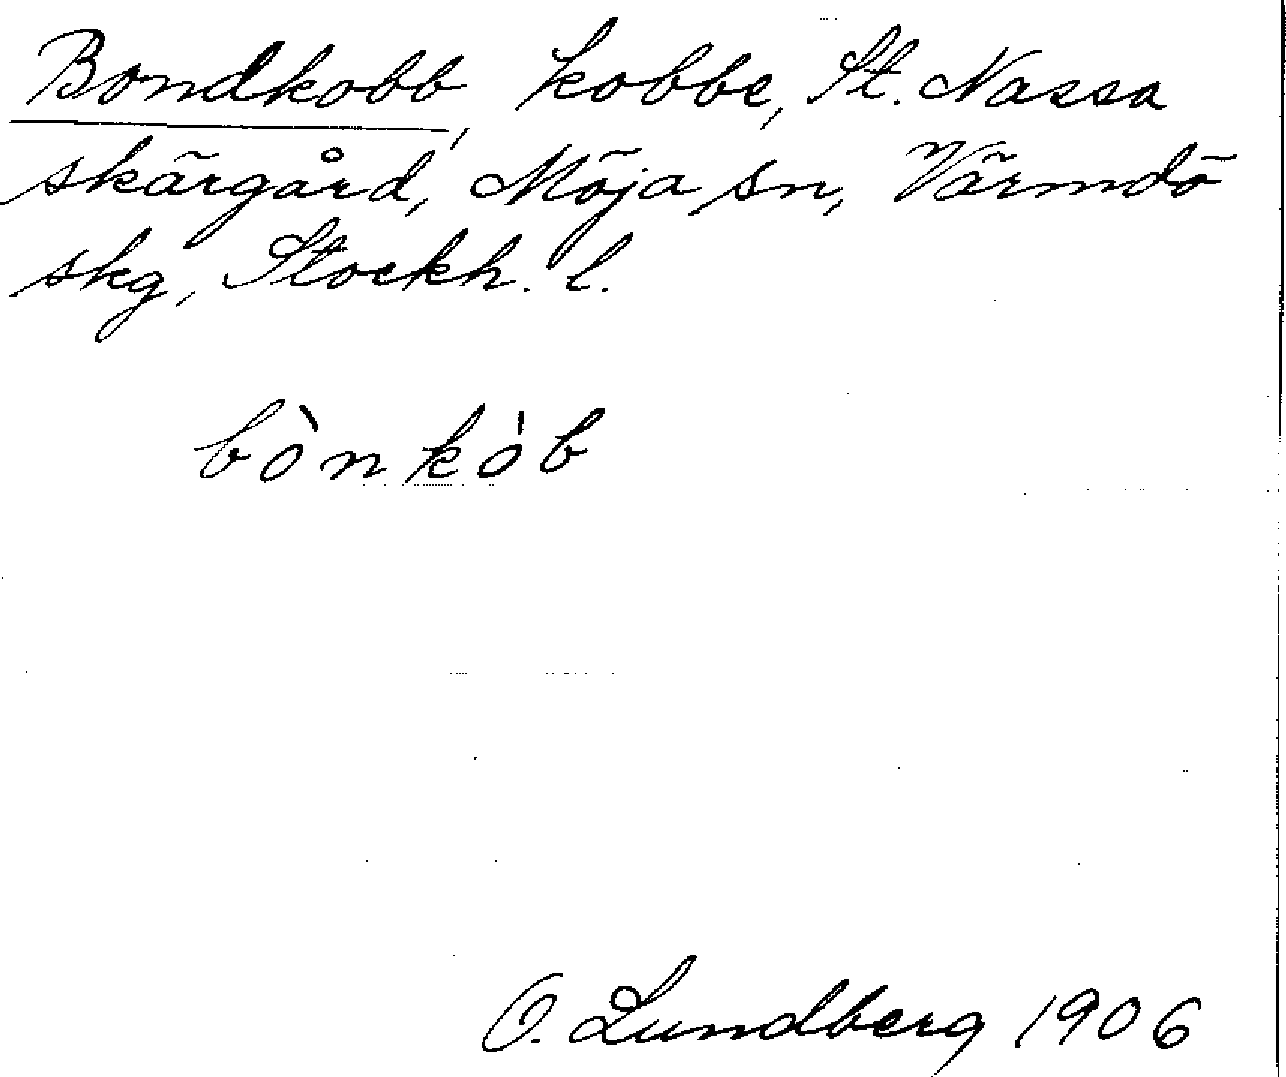 Bondkobb, kobbe, St. Nassa
skärgård, Möja sn, Värmdö
skg, Stockh. l.
bònkòb
O. Lundberg 1906